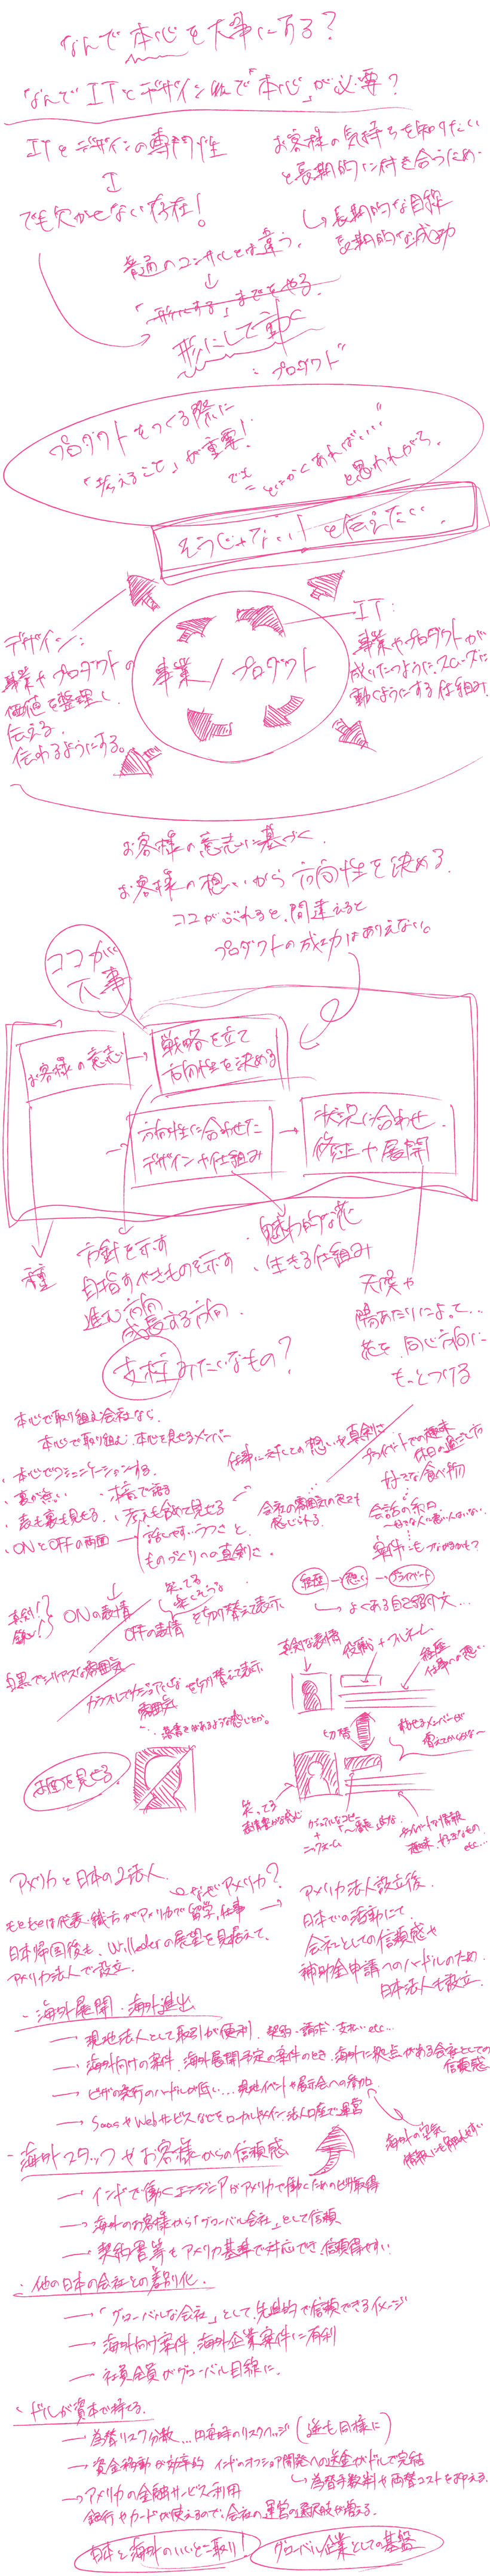 なんで本心を大事にする？
なんでITとデザイン会社で「本心」が必要？
ITとデザインの専門性
↕
でも欠かせない存在！
お客様の気持ちを知りたい
と長期的に付き合うため。
↳長期的な目標
長期的な成功
普通のコンサルとは違う。
↓
「形にする」までをやる。
形にして動く
プロダクト
プロダクトをつくる際に
「考えること」が重要！
でも
"とにかくあればいい"
と思われがち。
そうじゃない！と伝えたい。
デザイン：
事業やプロダクトの
価値を整理し
伝える。
伝わるようにする。
事業／プロダクト
IT：
事業やプロダクトが
成りたつように、スムーズに
動くようにする仕組み
お客様の意志に基づく。
お客様の想いから方向性を決める。
ココがぶれると、間違えると
プロダクトの成功はありえない。
ココが
大事
お客様の意志
→ 戦略を立て
方向性を決める
→ 方向性に合わせた
デザインや仕組み
→ 状況に合わせ
修正や展開
種
方針を示す
目指すべきものを示す
進む方向
成長する方向。
・魅力的な花
・生きる仕組み
天候や
陽あたりによって…
花を同じ方向に
もっとつける
支柱みたいなもの？
本心で取り組む会社なら、
本心で取り組む、本心を見せるメンバー
・本心でコミュニケーションする。
・裏が無い　・本音で語る
・表も裏も見せる。
・ONとOFFの両面
ものづくりへの真剣さ。
仕事に対しての想いや真剣さ
会社の雰囲気の良さも
感じられる
プライベートでの趣味
休日の過ごし方
好きな食べ物
会話の糸口
案件にもつながるかも？
真剣！？
ONの表情
笑ってる
OFFの表情
を切り替えて表示
白黒でシリアスな雰囲気
カラフルでカジュアルな
雰囲気
を切り替えて表示
経歴 → 想い → プライベート
↳よくある自己紹介文…
真剣な表情
役職＋フルネーム
経歴
仕事への想い
切替
お面を見せる
笑ってる
＋
ニックネーム
プライベートな情報
趣味、好きなもの
etc…
アメリカと日本の2法人
なぜアメリカ？
もともとは代表・織方がアメリカで留学、仕事
日本帰国後も、
の展望を見据えて、
アメリカ法人で設立。
→ アメリカ法人設立後
日本での活動にて
会社としての信頼感や
補助金申請へのハードルのため
日本法人も設立。
・海外展開・海外進出
→ 現地法人として取引が便利、契約・請求・支払いetc…
→ 海外向けの案件、海外展開予定の案件のとき、海外に拠点がある会社としての
信頼感
→ ビザの発行のハードルが低い…現地イベントや展示会への参加
→ SaaSやWebサービスなどをローカルドメイン、法人口座で運営
海外の空気
情報にも触れやすい
・海外スタッフやお客様からの信頼感
→ インドで働くエンジニアがアメリカで働くためのビザ取得
→ 海外のお客様から「グローバル会社」として信頼
→ 契約書等もアメリカ基準で対応でき、信頼得やすい
・他の日本の会社との差別化。
→ 「グローバルな会社」として、先進的で信頼できるイメージ
→ 海外向け案件、海外企業案件に有利
→ 社員全員がグローバル目線に。
・ドルが資本で持てる。
→ 為替リスク分散…円安時のリスクヘッジ（逆も同様に）
→ 資金移動が効率的 インドのオフショア開発への送金がドルで完結
↳為替手数料や両替コストをおさえる。
→ アメリカの金融サービス利用
銀行やカードが使えるので、会社の運営の選択肢が増える。
日本と海外のいいとこ取り！
グローバル企業としての基盤